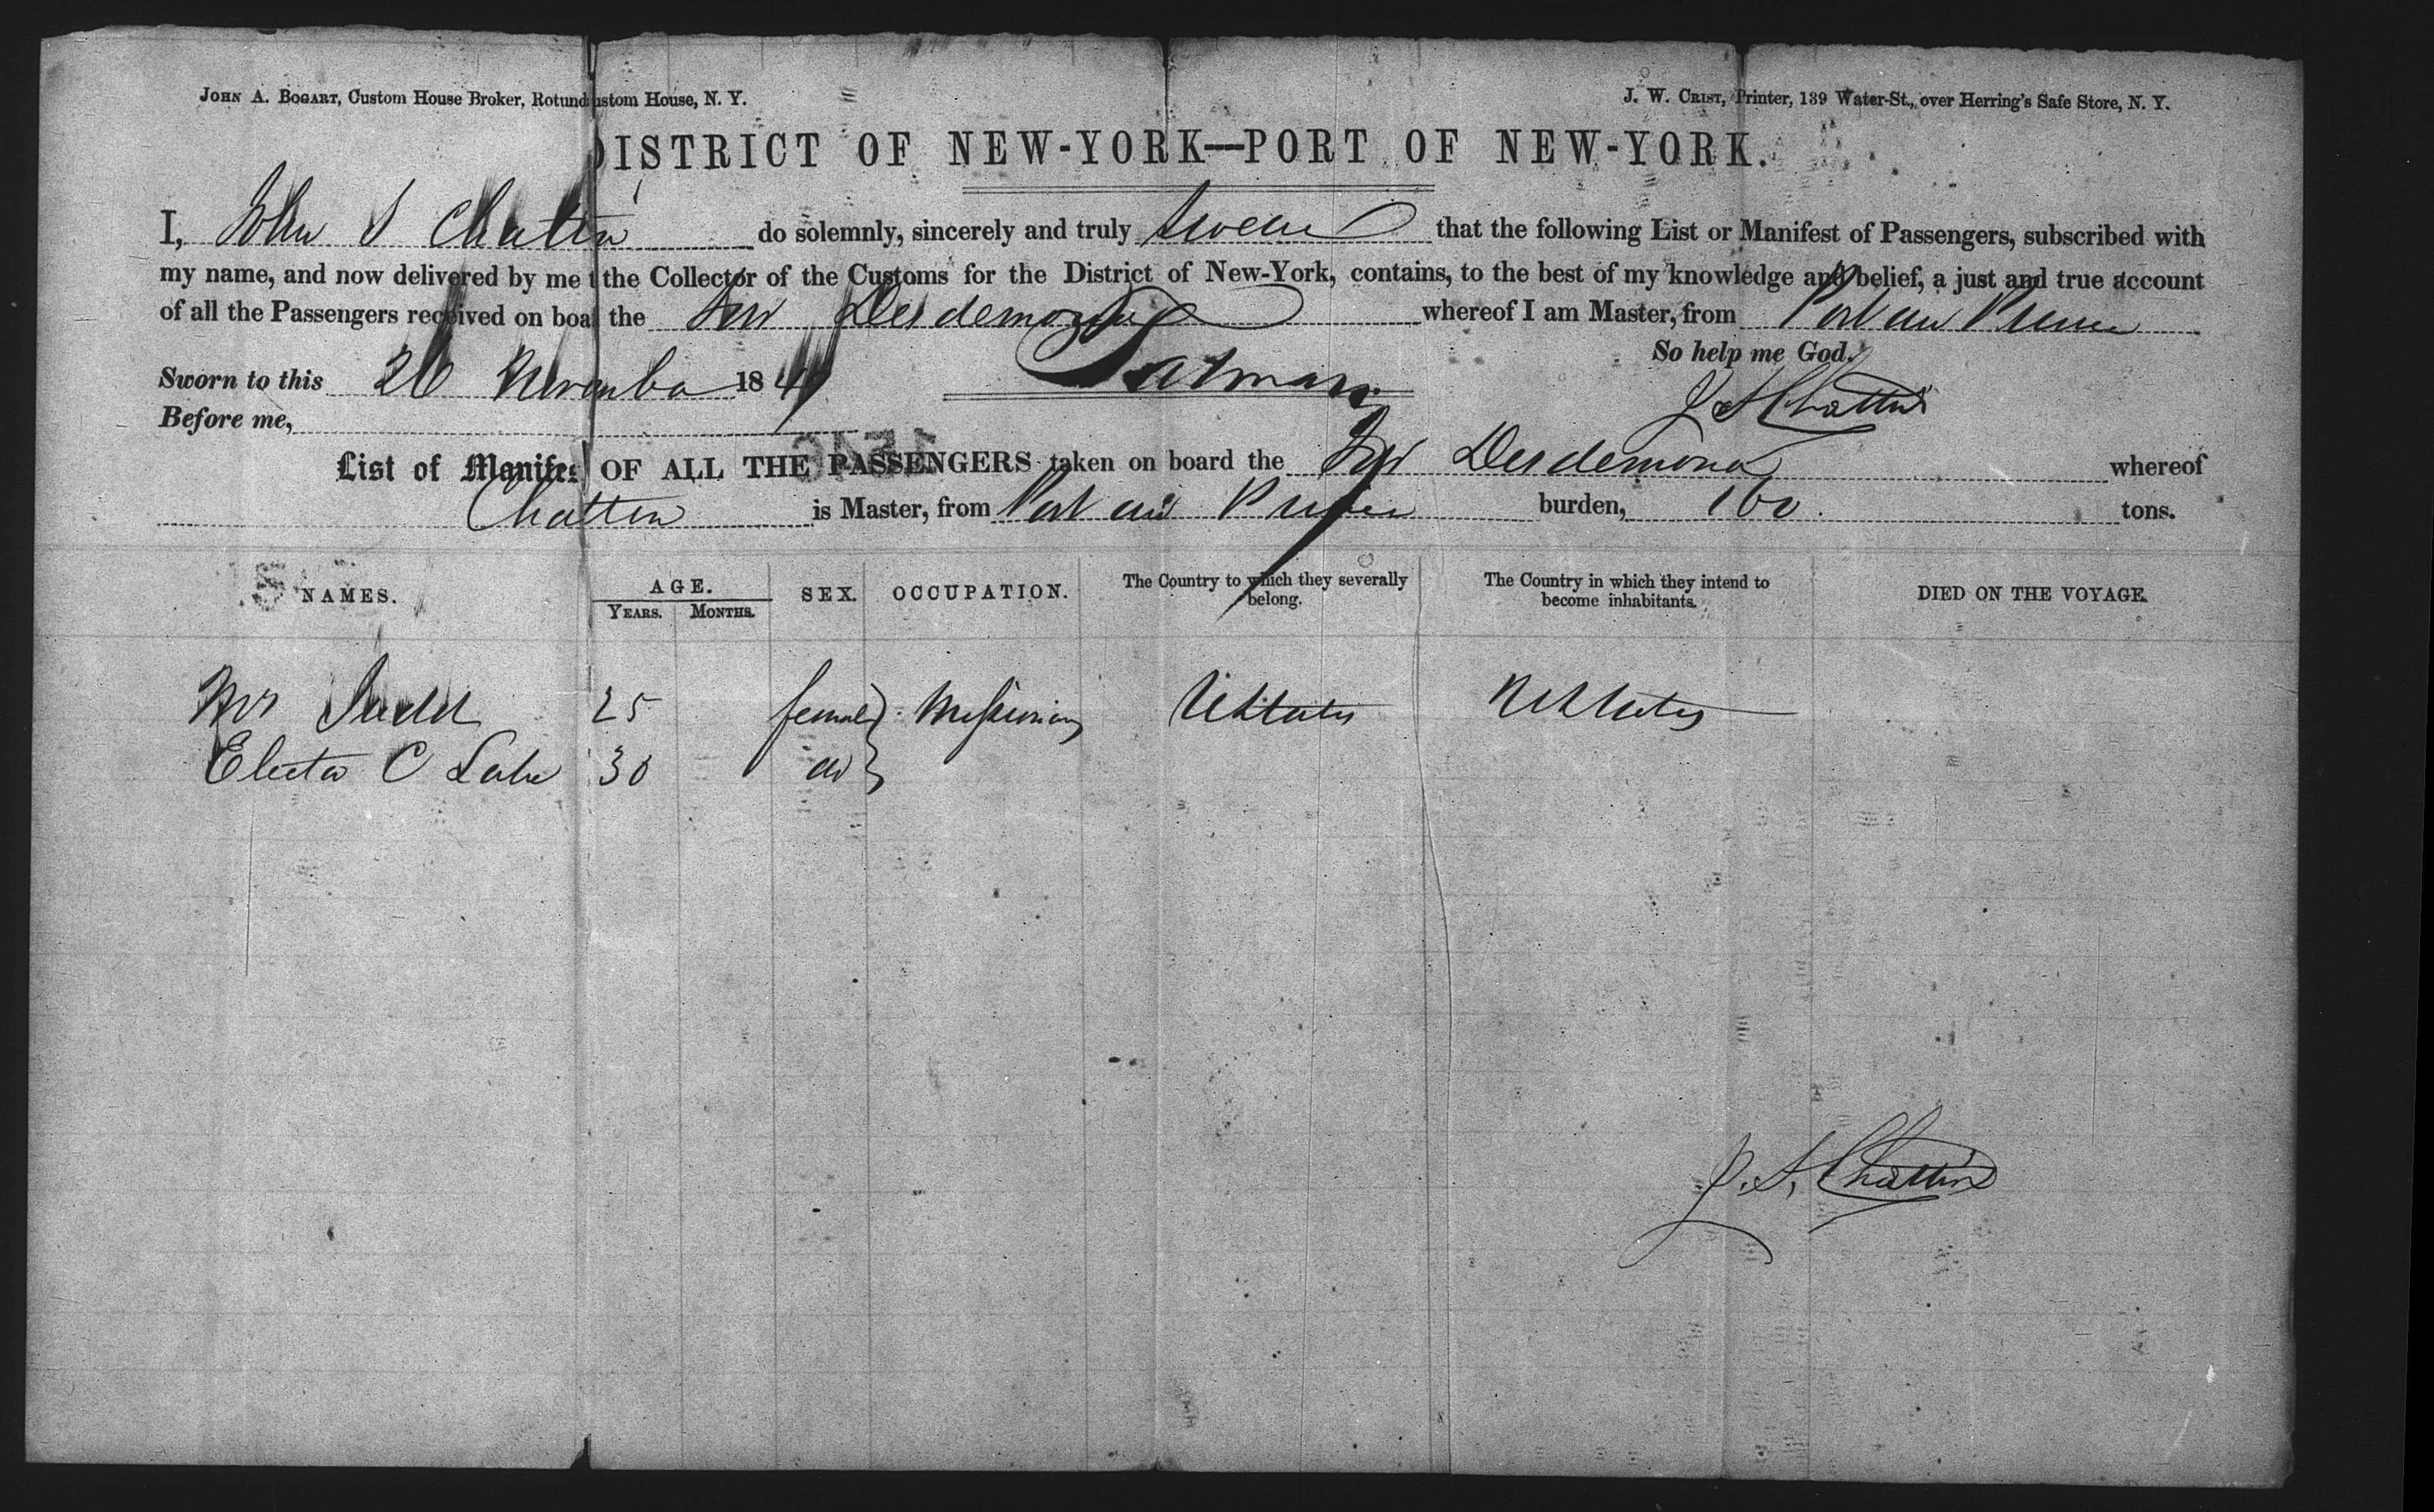 JOHN A. BOGART, Custom House Broker, Rotund ustom House, N. Y.
J. W. CRIST, Printer, 139 Water-St., over Herring's Safe Store, N. Y.
DISTRICT OF NEW-YORK—PORT OF NEW-YORK.
I, John S Chatten do solemnly, sincerely and truly swear that the following List or Manifest of Passengers, subscribed with
my name, and now delivered by me t the Collector of the Customs for the District of New-York, contains, to the best of my knowledge and belief, a just and true account
of all the Passengers received on boa the Desdemona whereof I am Master, from Port au Prince
So help me God.
Sworn to this 26 November 184
J S Chatten
Before me,
List of Manifes OF ALL THE PASSENGERS taken on board the Desdemona whereof
Chatten is Master, from Port au Prince burden, 160 tons.
NAMES. AGE. SEX. OCCUPATION. The Country to which they severally belong. The Country in which they intend to become inhabitants. DIED ON THE VOYAGE.
YEARS. MONTHS.
Mrs Judd 25 female Missionary UStates UStates
Electa C Lake 30 do
J. S. Chatten